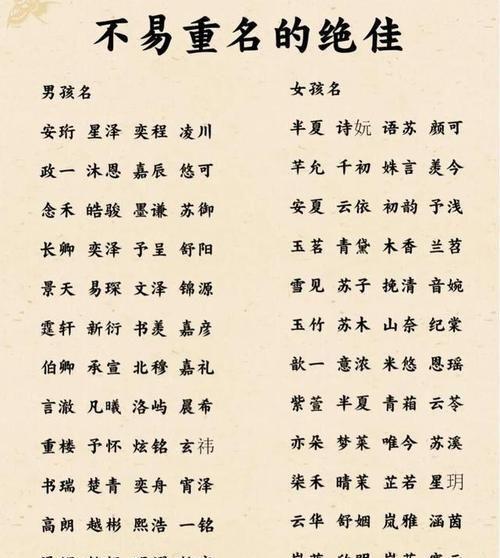 不易重名的绝佳
男孩名
安珩 星泽 奕程 凌川
政一 沐恩 嘉辰 悠可
念禾 皓骏 墨谦 苏御
长卿 奕泽 予呈 舒阳
景天 易琛 文泽 锦源
霆轩 新衍 书羡 嘉彦
伯卿 承宣 北穆 嘉礼
言澈 凡曦 洛屿 晨希
重楼 予怀 炫铭 玄祎
书瑞 楚青 奕舟 宵泽
高朗 越彬 熙浩 一铭
女孩名
半夏 诗妧 语苏 颜可
芊允 千初 姝言 羡今
安夏 云依 初韵 予浅
玉茗 青黛 木香 兰苕
雪见 苏子 挽清 音婉
玉竹 苏木 山奈 纪棠
歆一 意浓 米悠 恩瑶
紫萱 半夏 青葙 云苓
亦朵 梦莱 唯今 苏溪
柒禾 晴莱 芷若 星玥
云华 舒姻 岚雅 涵茵